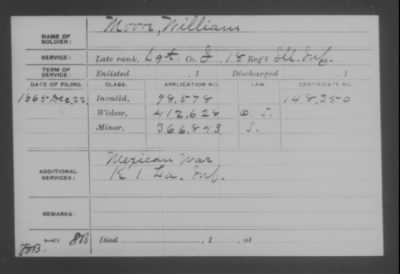 NAME OF SOLDIER: Moon, William
SERVICE: Late rank, Sgt. Co. I, 18 Reg't Ill. Inf.
TERM OF SERVICE: Enlisted , 1 Discharged , 1
DATE OF FILING. CLASS. APPLICATION NO. LAW. CERTIFICATE NO.
1865 Dec, 22, Invalid, 98,578 148,350
Widow, 412,628
Minor, 366,843
ADDITIONAL SERVICES: Mexican War
K 1. La. Inf.
REMARKS:
Died , 1 , at